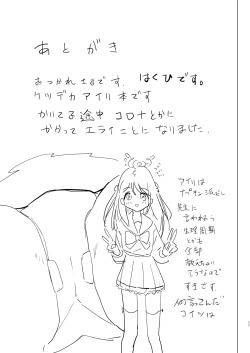 あとがき
おつかれさまです。はくひです。
ケツデカアイリ本です
かいてる途中コロナとかに
かかってエライことになりました.
アイリは
先生に
言われたら
生理周期
とかも
全部
教えて
くれそうなので
すきです.
何言ってんだ
コイツは